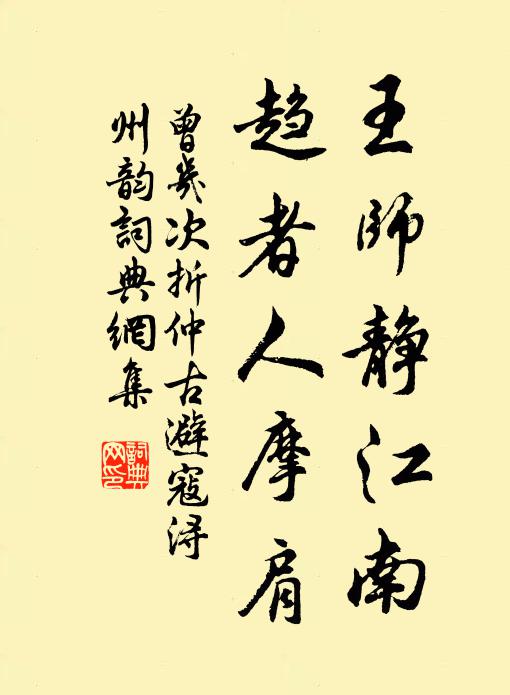 王师静江南
趋者人摩肩
曾几次折仲古避寇浔
州韵詞典網集
詞典网印